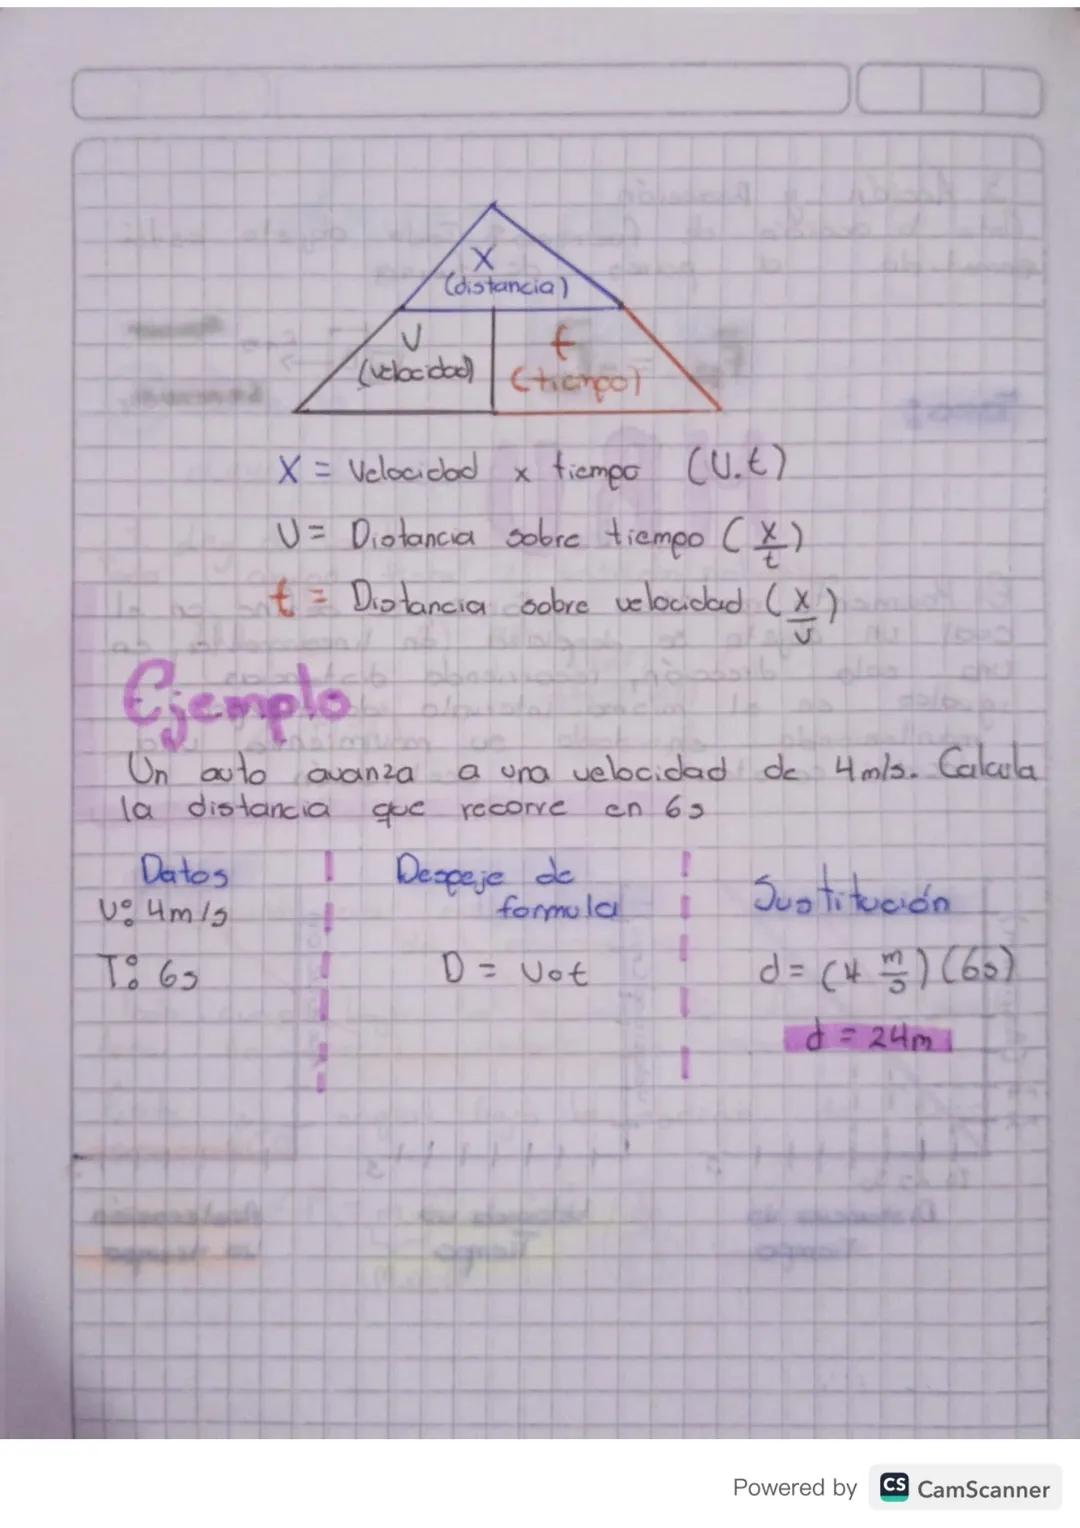 X
(distancia)
V
(velocidad)
t
(tiempo)
X = Velocidad x tiempo (V.t)
V = Distancia sobre tiempo (x/t)
t = Distancia sobre velocidad (x/v)
Ejemplo
Un auto avanza a una velocidad de 4m/s. Calcula
la distancia que recorre en 6s
Datos
V: 4m/s
T: 6s
Despeje de
formula
D = V•t
Sustitución
d = (4 m/s) (6s)
d = 24m
Powered by CS CamScanner